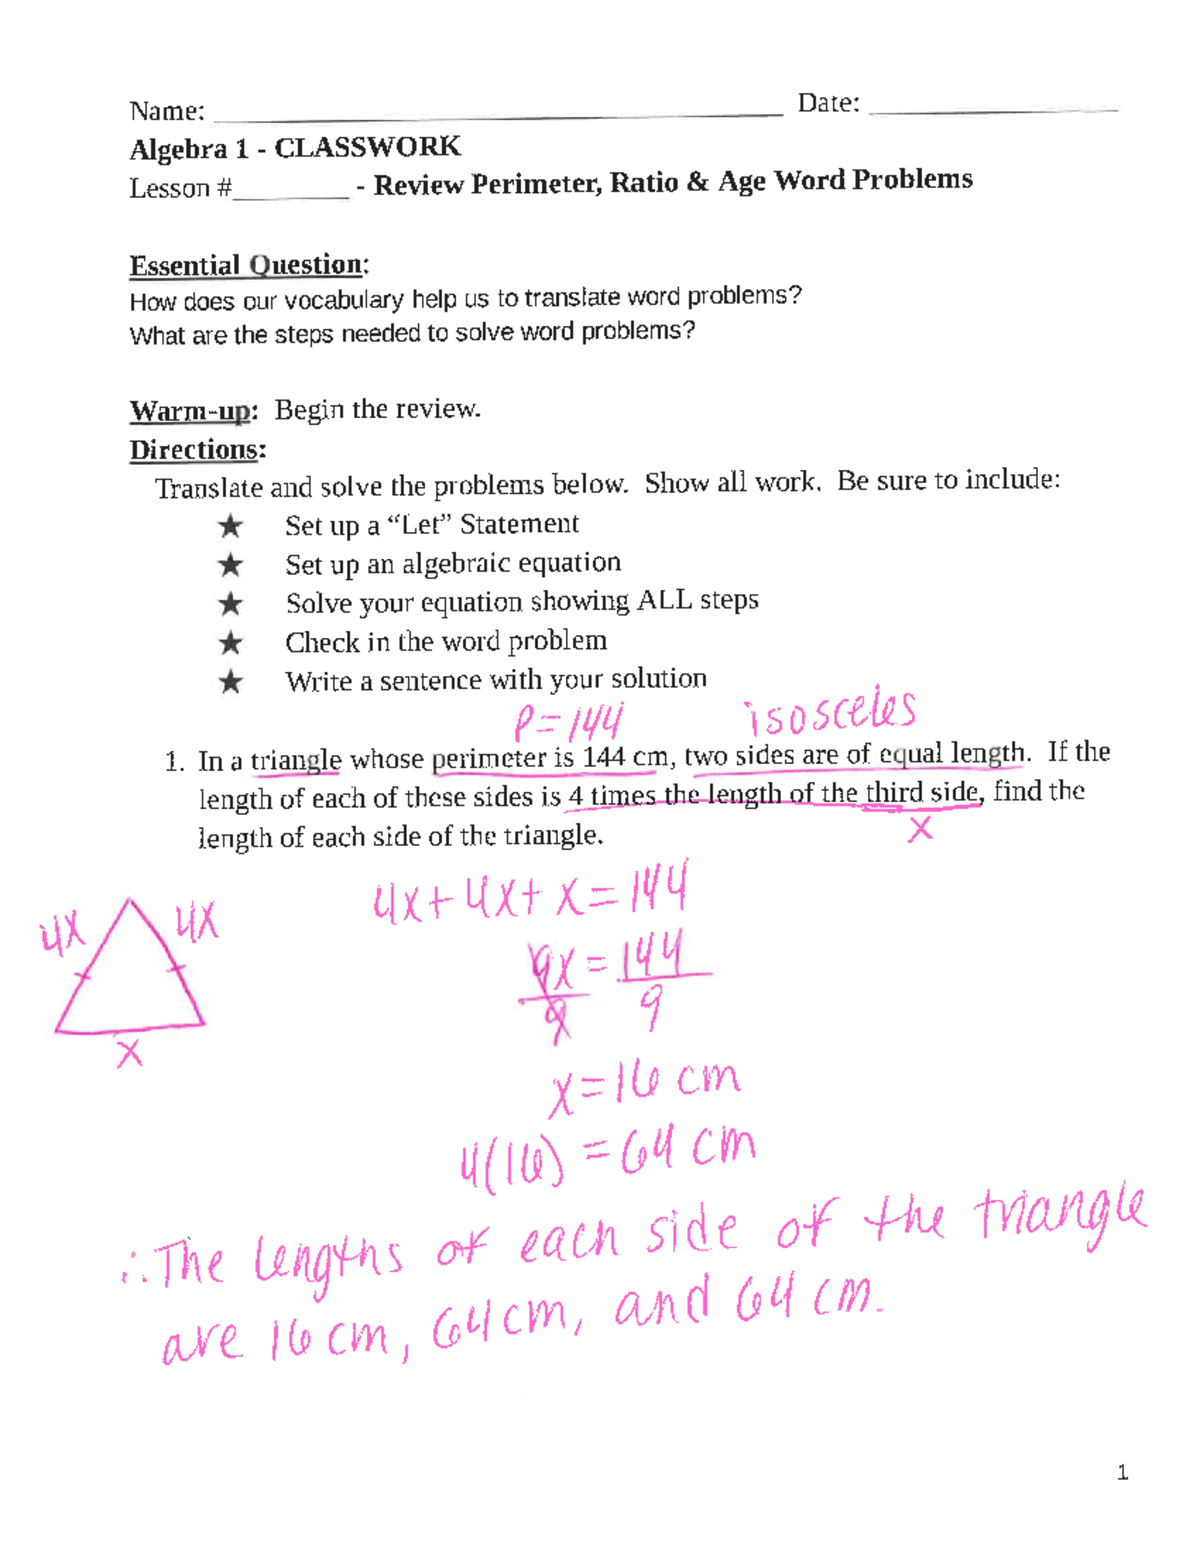 Name: ________________ Date: ________________
Algebra 1 - CLASSWORK
Lesson #________ - Review Perimeter, Ratio & Age Word Problems
Essential Question:
How does our vocabulary help us to translate word problems?
What are the steps needed to solve word problems?
Warm-up: Begin the review.
Directions:
Translate and solve the problems below. Show all work. Be sure to include:
★ Set up a “Let” Statement
★ Set up an algebraic equation
★ Solve your equation showing ALL steps
★ Check in the word problem
★ Write a sentence with your solution
P=144 isosceles
1. In a triangle whose perimeter is 144 cm, two sides are of equal length. If the
length of each of these sides is 4 times the length of the third side, find the
x
length of each side of the triangle.
4x+4x+x=144
4x 4x
9x=144
9 9
x
x=16 cm
4(16)=64 cm
∴The lengths of each side of the triangle
are 16 cm, 64 cm, and 64 cm.
1